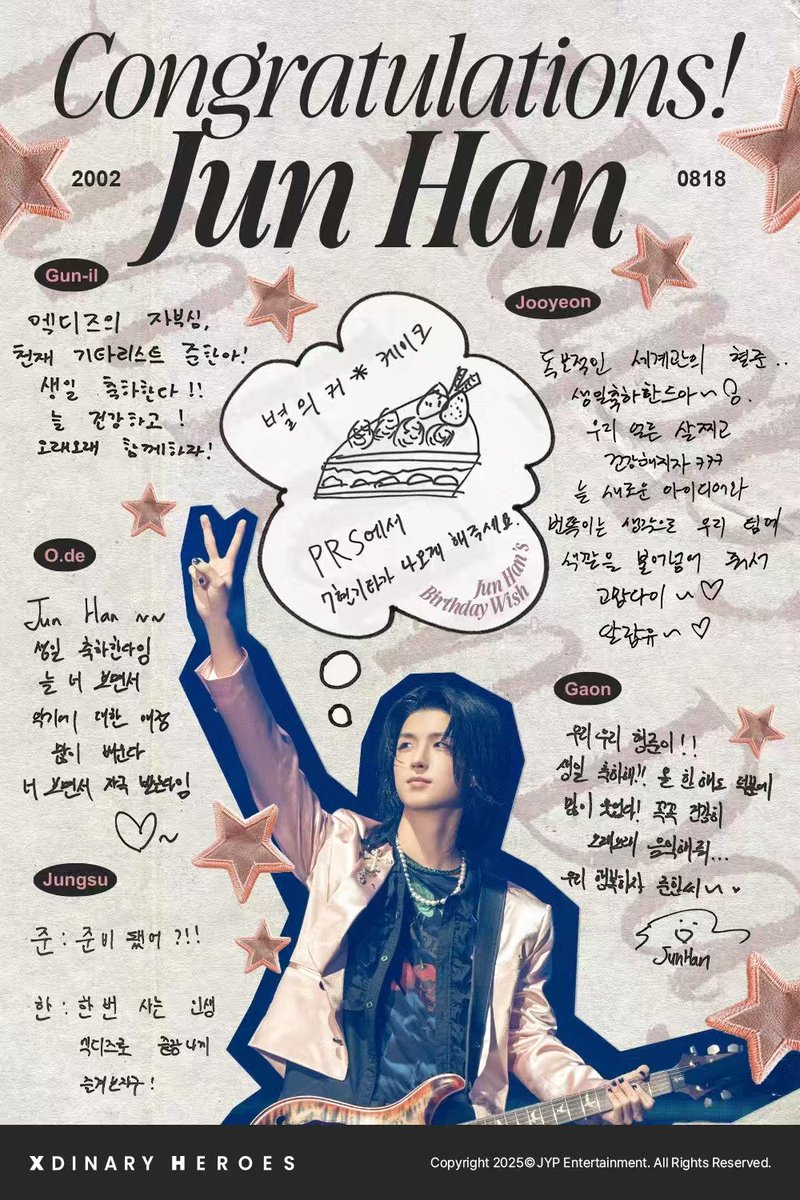 Congratulations!
Jun Han
2002
0818
Gun-il
엑디즈의 자부심,
천재 기타리스트 준한아!
생일 축하한다!!
늘 건강하고!
오래오래 함께하자!
Jooyeon
독보적인 세계관의 형준..
생일축하한드아~
우리 얼른 살찌고
건강해지자 ㅋㅋㅋ
늘 새로운 아이디어와
번쩍이는 생각으로 우리 팀에
색깔을 불어넣어 줘서
고맙다이~♡
알랍유~♡
별의 커*케이크
PRS에서
7현기타가 나오게 해주세요.
Jun Han's
Birthday Wish
O.de
Jun Han ~~
생일 축하한다임
늘 너 보면서
악기에 대한 애정
많이 배운다
너 보면서 자극 받는다임
♡~
Gaon
우리우리 형준이!!
생일 축하해!! 올 한해도 덕분에
많이 웃었다! 꼭꼭 건강히
오래오래 음악해줘...
우리 행복하자 준한씨~
JunHan
Jungsu
준 : 준비 됐어?!!
한 : 한 번 사는 인생
엑디즈로 즐겁나게
즐겨보자구!
XDINARY HEROES
Copyright 2025© JYP Entertainment. All Rights Reserved.